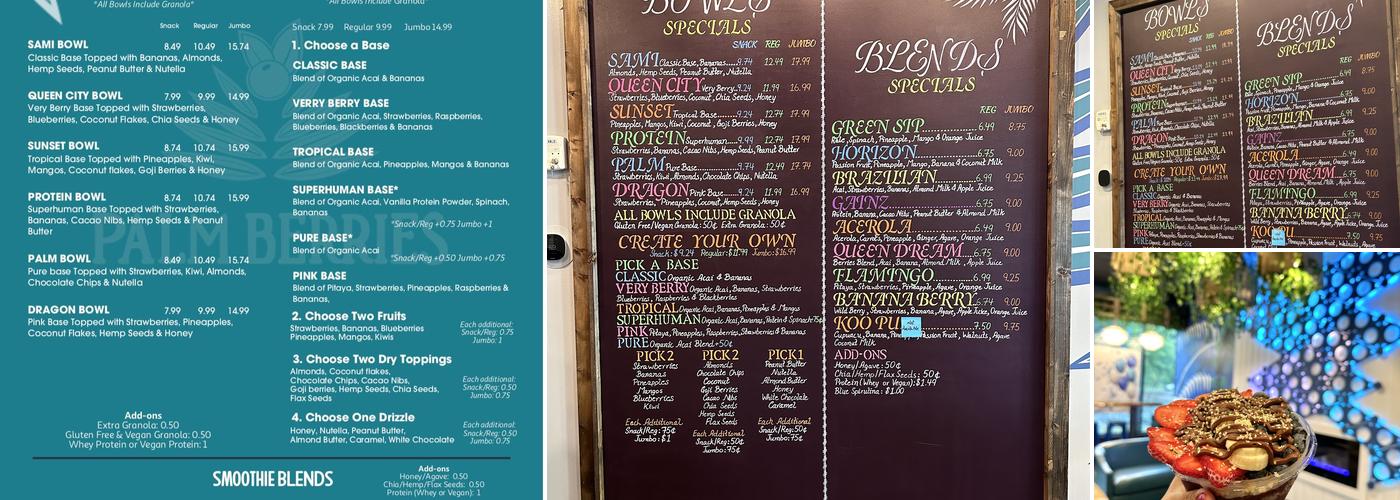 *All Bowls Include Granola*
Snack Regular Jumbo
SAMI BOWL 8.49 10.49 15.74
Classic Base Topped with Bananas, Almonds,
Hemp Seeds, Peanut Butter & Nutella
QUEEN CITY BOWL 7.99 9.99 14.99
Very Berry Base Topped with Strawberries,
Blueberries, Coconut Flakes, Chia Seeds & Honey
SUNSET BOWL 8.74 10.74 15.99
Tropical Base Topped with Pineapples, Kiwi,
Mangos, Coconut flakes, Goji Berries & Honey
PROTEIN BOWL 8.74 10.74 15.99
Superhuman Base Topped with Strawberries,
Bananas, Cacao Nibs, Hemp Seeds & Peanut
Butter
PALM BOWL 8.49 10.49 15.74
Pure base Topped with Strawberries, Kiwi, Almonds,
Chocolate Chips & Nutella
DRAGON BOWL 7.99 9.99 14.99
Pink Base Topped with Strawberries, Pineapples,
Coconut Flakes, Hemp Seeds & Honey
Add-ons
Extra Granola: 0.50
Gluten Free & Vegan Granola: 0.50
Whey Protein or Vegan Protein: 1
PALM BERRIES
*All Bowls Include Granola*
Snack 7.99 Regular 9.99 Jumbo 14.99
1. Choose a Base
CLASSIC BASE
Blend of Organic Acai & Bananas
VERRY BERRY BASE
Blend of Organic Acai, Strawberries, Raspberries,
Blueberries, Blackberries & Bananas
TROPICAL BASE
Blend of Organic Acai, Pineapples, Mangos & Bananas
SUPERHUMAN BASE*
Blend of Organic Acai, Vanilla Protein Powder, Spinach,
Bananas
*Snack/Reg +0.75 Jumbo +1
PURE BASE*
Blend of Organic Acai
*Snack/Reg +0.50 Jumbo +0.75
PINK BASE
Blend of Pitaya, Strawberries, Pineapples, Raspberries &
Bananas,
2. Choose Two Fruits
Strawberries, Bananas, Blueberries
Pineapples, Mangos, Kiwis
Each additional:
Snack/Reg: 0.75
Jumbo: 1
3. Choose Two Dry Toppings
Almonds, Coconut flakes,
Chocolate Chips, Cacao Nibs,
Goji berries, Hemp Seeds, Chia Seeds,
Flax Seeds
Each additional:
Snack/Reg: 0.50
Jumbo: 0.75
4. Choose One Drizzle
Honey, Nutella, Peanut Butter,
Almond Butter, Caramel, White Chocolate
Each additional:
Snack/Reg: 0.50
Jumbo: 0.75
SMOOTHIE BLENDS
Add-ons
Honey/Agave: 0.50
Chia/Hemp/Flax Seeds: 0.50
Protein (Whey or Vegan): 1
BOWLS
SPECIALS
SNACK REG JUMBO
SAMI Classic Base, Bananas.....9.74 12.49 17.99
Almonds, Hemp Seeds, Peanut Butter, Nutella
QUEEN CITY Very Berry..9.24 11.99 16.99
Strawberries, Blueberries, Coconut, Chia Seeds, Honey
SUNSET Tropical Base.........9.99 12.74 17.99
Pineapples, Mangos, Kiwi, Coconut, Goji Berries, Honey
PROTEIN Superhuman.......9.99 12.74 17.99
Strawberries, Bananas, Cacao Nibs, Hemp Seeds, Peanut Butter
PALM Pure Base................9.74 12.49 17.74
Strawberries, Kiwi, Almonds, Chocolate Chips, Nutella
DRAGON Pink Base.........9.24 11.99 16.99
Strawberries, Pineapples, Coconut, Hemp Seeds, Honey
ALL BOWLS INCLUDE GRANOLA
Gluten Free/Vegan Granola: 50¢ Extra Granola: 50¢
CREATE YOUR OWN
Snack: $9.24 Regular: $11.99 Jumbo: $16.99
PICK A BASE
CLASSIC Organic Acai & Bananas
VERY BERRY Organic Acai, Bananas, Strawberries
Blueberries, Raspberries & Blackberries
TROPICAL Organic Acai, Bananas, Pineapples & Mangos
SUPERHUMAN Organic Acai, Bananas, Protein & Spinach +75¢
PINK Pitaya, Pineapples, Raspberries, Strawberries & Bananas
PURE Organic Acai Blend +50¢
PICK 2
Strawberries
Bananas
Pineapples
Mangos
Blueberries
Kiwi
Each Additional
Snack/Reg: 75¢
Jumbo: $1
PICK 2
Almonds
Chocolate Chips
Coconut
Goji Berries
Cacao Nibs
Chia Seeds
Hemp Seeds
Flax Seeds
Each Additional
Snack/Reg: 50¢
Jumbo: 75¢
PICK 1
Peanut Butter
Nutella
Almond Butter
Honey
White Chocolate
Caramel
Each Additional
Snack/Reg: 50¢
Jumbo: 75¢
BLENDS
SPECIALS
REG JUMBO
GREEN SIP 6.49 8.75
Kale, Spinach, Pineapple, Mango & Orange Juice
HORIZON 6.75 9.00
Passion Fruit, Pineapple, Mango, Banana & Coconut Milk
BRAZILIAN 6.75 9.25
Acai, Strawberries, Banana, Almond Milk & Apple Juice
GAINZ 6.75 9.00
Protein, Banana, Cacao Nibs, Peanut Butter & Almond Milk
ACEROLA 6.49 9.00
Acerola, Carrots, Pineapple, Ginger, Agave, Orange Juice
QUEEN DREAM 6.75 9.00
Berries Blend, Acai, Banana, Almond Milk, Apple Juice
FLAMINGO 6.99 9.25
Pitaya, Strawberries, Pineapple, Agave, Orange Juice
BANANA BERRY 6.74 9.00
Wild Berry, Strawberries, Banana, Agave, Apple Juice
KOO PU 7.50 9.75
Cupuacu, Banana, Passion Fruit, Walnuts, Agave
Coconut Milk
ADD-ONS
Honey/Agave: 50¢
Chia/Hemp/Flax Seeds: 50¢
Protein (Whey or Vegan): $1.49
Blue Spirulina: $1.00
BOWLS
SPECIALS
SAMI
QUEEN CITY
SUNSET
PROTEIN
PALM
DRAGON
ALL BOWLS INCLUDE GRANOLA
CREATE YOUR OWN
PICK A BASE
CLASSIC
VERY BERRY
TROPICAL
SUPERHUMAN
PINK
PURE
BLENDS
SPECIALS
REG JUMBO
GREEN SIP
HORIZON
BRAZILIAN
GAINZ
ACEROLA
QUEEN DREAM
FLAMINGO
BANANA BERRY
KOO PU